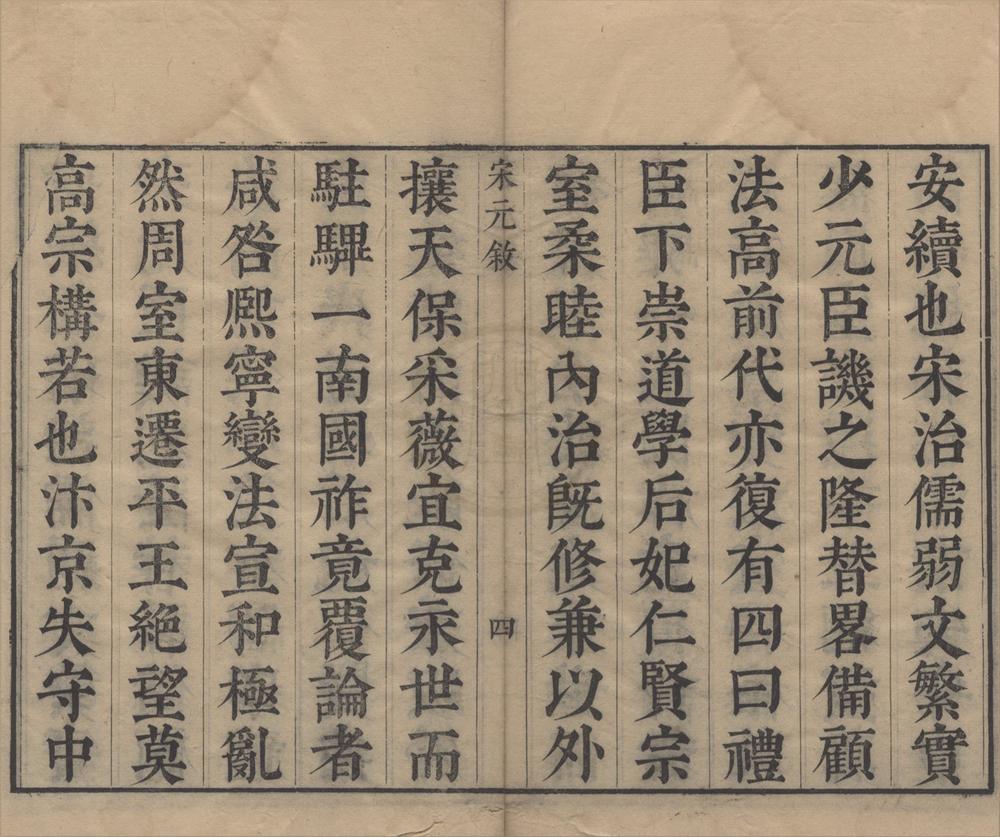 安續也宋治儒弱文繁實
少元臣譏之隆替畧備顧
法高前代亦復有四曰禮
臣下崇道學后妃仁賢宗
室柔睦內治旣修兼以外
宋元敘
四
攘天保采薇宜克永世而
駐驆一南國祚竟覆論者
咸咎熈寧變法宣和極亂
然周室東遷平王絶望莫
高宗構若也汴京失守中